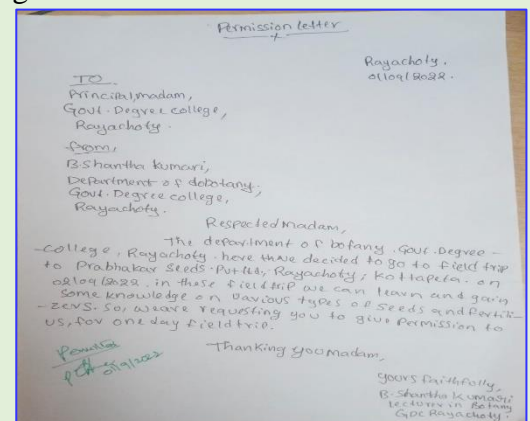 Permission letter
Rayachoty.
01/09/2022.
TO
Principal, madam,
Govt. Degree college,
Rayachoty.
from,
B. Shantha kumari,
Department of dobotany,
Govt. Degree college,
Rayachoty.
Respected madam,
The department of botany. Govt. Degree -
college, Rayachoty. here have decided to go to field trip
to Prabhakar Seeds. Pvt Rayachoty, Kottapeta. on
02/09/2022. in these field trip we can learn and gain
some knowledge on various types of seeds and Fertili-
-zers. So, we are requesting you to give Permission to
us, for one day field trip.
Thanking you madam,
01/9/2022
yours faithfully,
B. Shantha kumari
Lecturer in Botany
GDC Rayachoty.